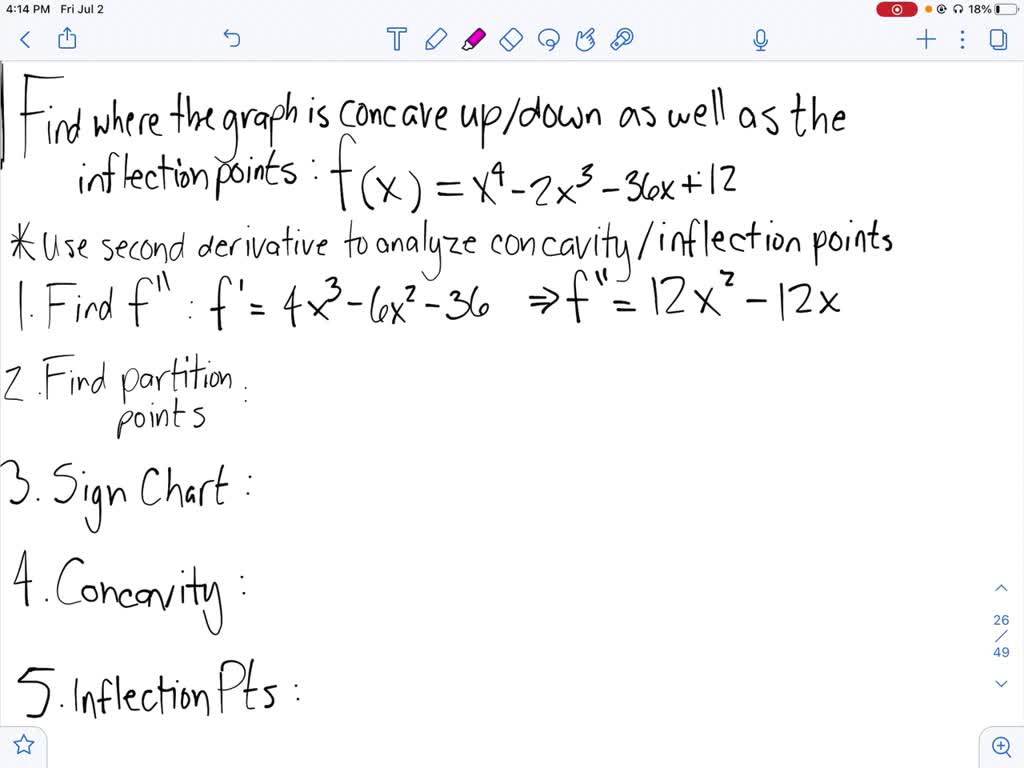 4:14 PM Fri Jul 2
18%
Find where the graph is concave up/down as well as the
inflection points : f(x) = x⁴ - 2x³ - 36x + 12
* Use second derivative to analyze concavity/inflection points
1. Find f'' : f' = 4x³ - 6x² - 36 ⇒ f'' = 12x² - 12x
2. Find partition :
points
3. Sign Chart :
4. Concavity :
5. Inflection Pts :
26
/
49